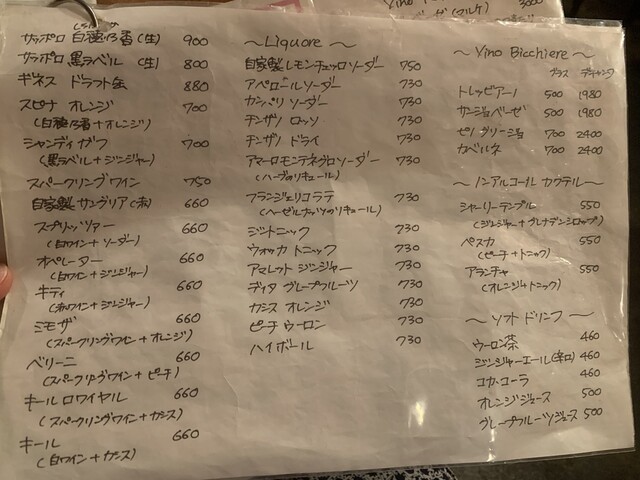 Vino
(マルケ)
3000
サッポロ 白穂乃香(生) 900
サッポロ 黒ラベル (生) 800
ギネス ドラフト缶 880
スピナ オレンジ 700
(白穂乃香+オレンジ)
シャンディ ガフ 700
(黒ラベル+ジンジャー)
スパークリングワイン 750
自家製 サングリア(赤) 660
スプリッツァー 660
(白ワイン+ソーダー)
オペレーター 660
(白ワイン+ジンジャー)
キティ 660
(赤ワイン+ジンジャー)
ミモザ 660
(スパークリングワイン+オレンジ)
ベリーニ 660
(スパークリングワイン+ピーチ)
キール ロワイヤル 660
(スパークリングワイン+カシス)
キール 660
(白ワイン+カシス)
~Liquore~
自家製レモンチェッロソーダー 750
アペロールソーダー 730
カンパリ ソーダー 730
チンザノ ロッソ 730
チンザノ ドライ 730
アマーロモンテネグロソーダー 730
(ハーブのリキュール)
フランジェリコラテ 730
(ヘーゼルナッツのリキュール)
ジントニック 730
ウォッカ トニック 730
アマレット ジンジャー 730
ディタ グレープフルーツ 730
カシス オレンジ 730
ピーチ ウーロン 730
ハイボール 730
~Vino Bicchiere~
グラス デキャンタ
トレッビアーノ 500 1980
サンジョベーゼ 500 1980
ピノ グリージョ 700 2400
カベルネ 700 2400
~ノンアルコール カクテル~
シャーリーテンプル 550
(ジンジャー+グレナデンシロップ)
ペスカ 550
(ピーチ+トニック)
アランチャ 550
(オレンジ+トニック)
~ソフトドリンク~
ウーロン茶 460
ジンジャーエール(辛口) 460
コカ・コーラ 460
オレンジジュース 500
グレープフルーツジュース 500